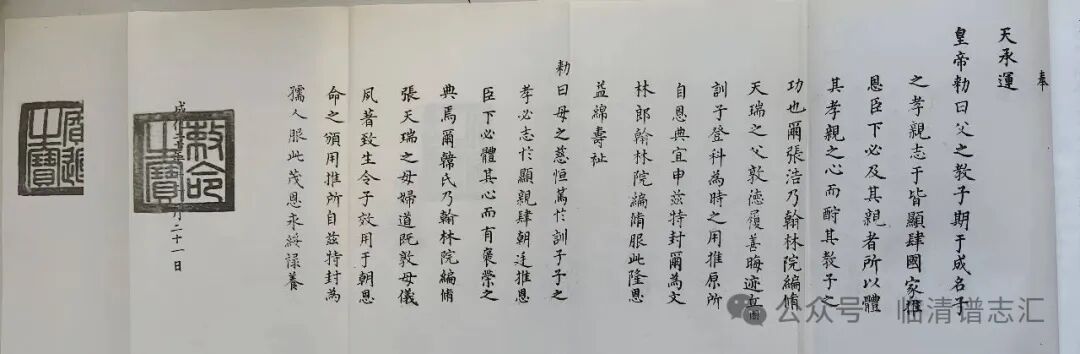 奉
天承運
皇帝勅曰父之教子期于成名子
之孝親志于皆顯肆國家推
恩臣下必及其親者所以體
其孝親之心而酧其教子之
功也爾張浩乃翰林院編脩
天瑞之父敦德履善晦迹丘園
訓子登科為時之用推原所
自恩典宜申兹特封爾為文
林郎翰林院編脩服此隆恩
益綿壽祉
勅曰母之慈恒篤扵訓子子之
孝必志扵顯親肆朝廷推恩
臣下必體其心而有褒榮之
典焉爾韓氏乃翰林院編脩
張天瑞之母婦道既敦母儀
夙著致生令子效用于朝恩
命之頒用推所自兹特封為
孺人服此茂恩永綏禄養
成化 年 月二十一日
敕命之寶
之寶
公众号 临清谱志汇